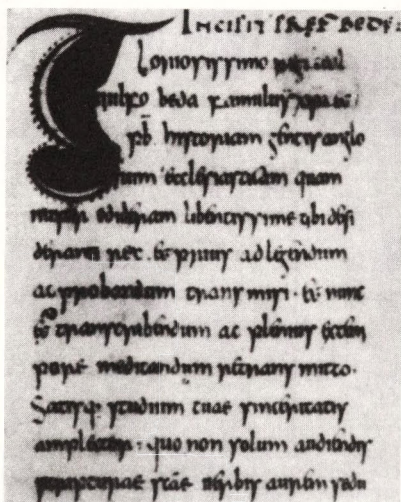 INCIPIT PRAEF BEDE:
Gloriosissimo regi ceol
uulfo beda famulus xpi et
prb historiam gentis anglo
rum ecclesiasticam quam
nuper edideram libentissime tibi desi
deranti rex . et prius ad legendum
ac probandum transmisi . et nunc
ad transcribendum ac plenius ex tem
pore meditandum retransmitto .
Satisq studium tuae sinceritatis
amplector . quo non solum audiendis
scripturae scae uerbis aurem sedu